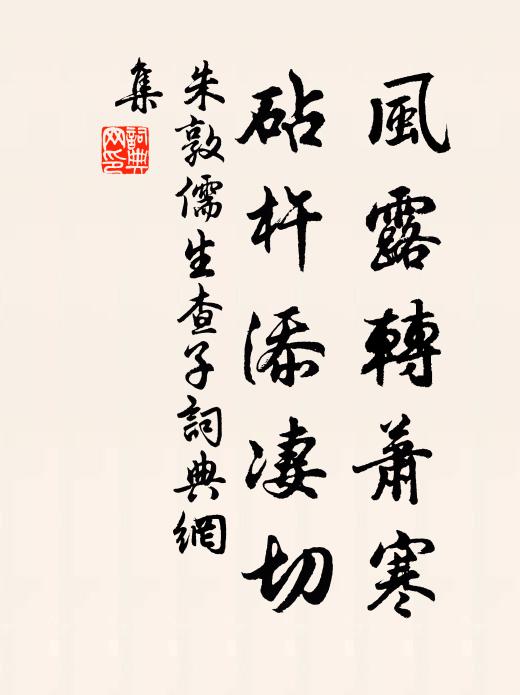 風露轉蕭寒
砧杵添淒切
朱敦儒生查子詞典網
集
詞典
网印